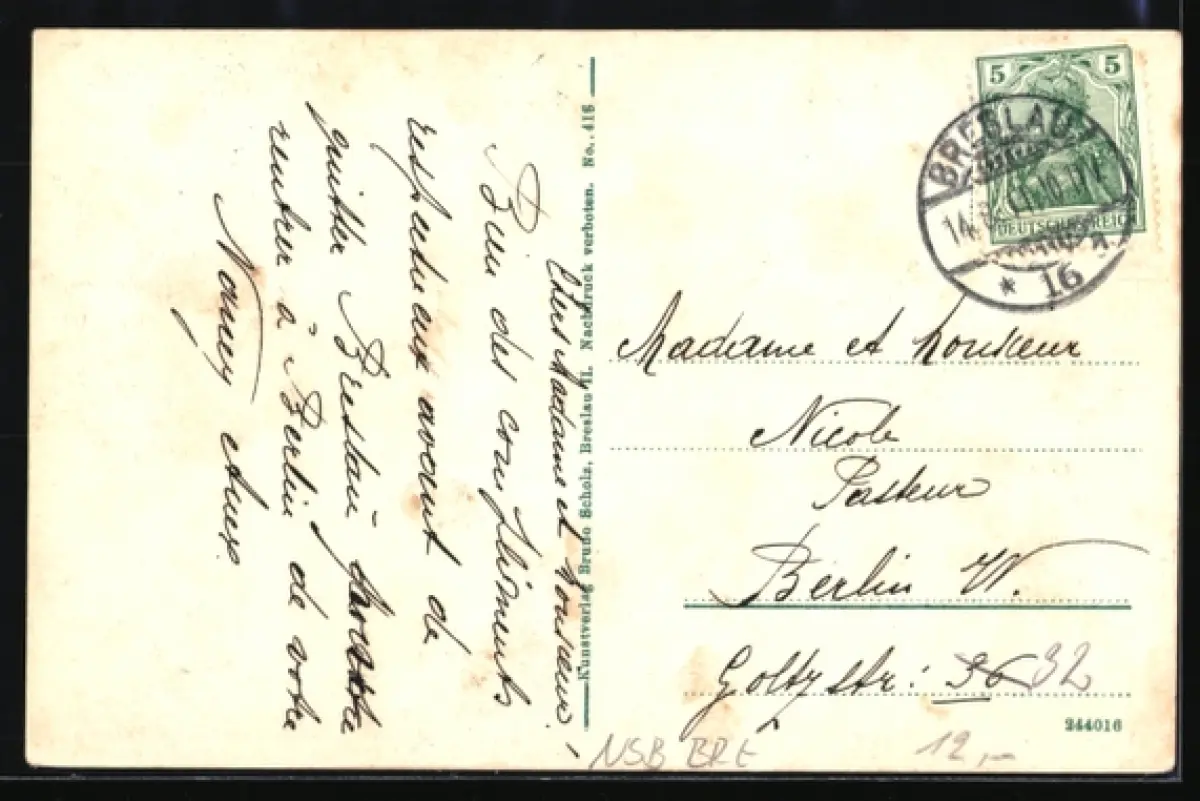 Chers Madame et Monsieur!
Bien des compliments
respectueux avant de
quitter Breslau
rentrer à Berlin de votre
Nancy
Kunstverlag Bruno Scholz, Breslau II. Nachdruck verboten. No. 416
5 5
DEUTSCHES REICH
BRESLAU
14
* 16 a
Madame et Monsieur
Nicole
Pasteur
Berlin W.
Goltzstr: 36 32
244016
NSB BRE
12,-